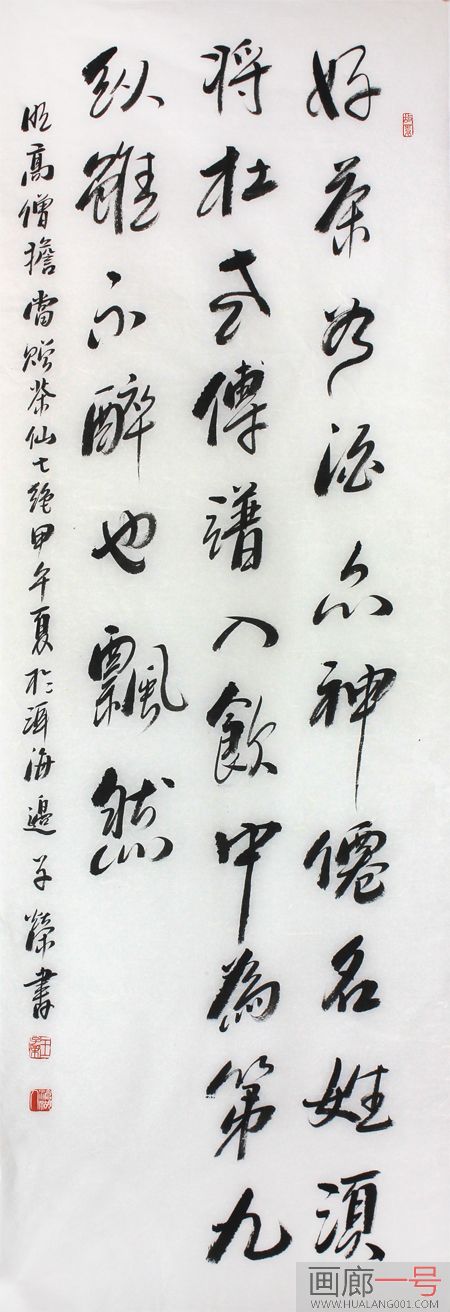 好茶酒亦神僊名姓須
将杜傳譜入飲中為第九
縱雖不醉也飄然
明高僧擔當贈茶仙七絶甲午夏於洱海邊子榮書
画廊一号
WWW.HUALANG001.COM